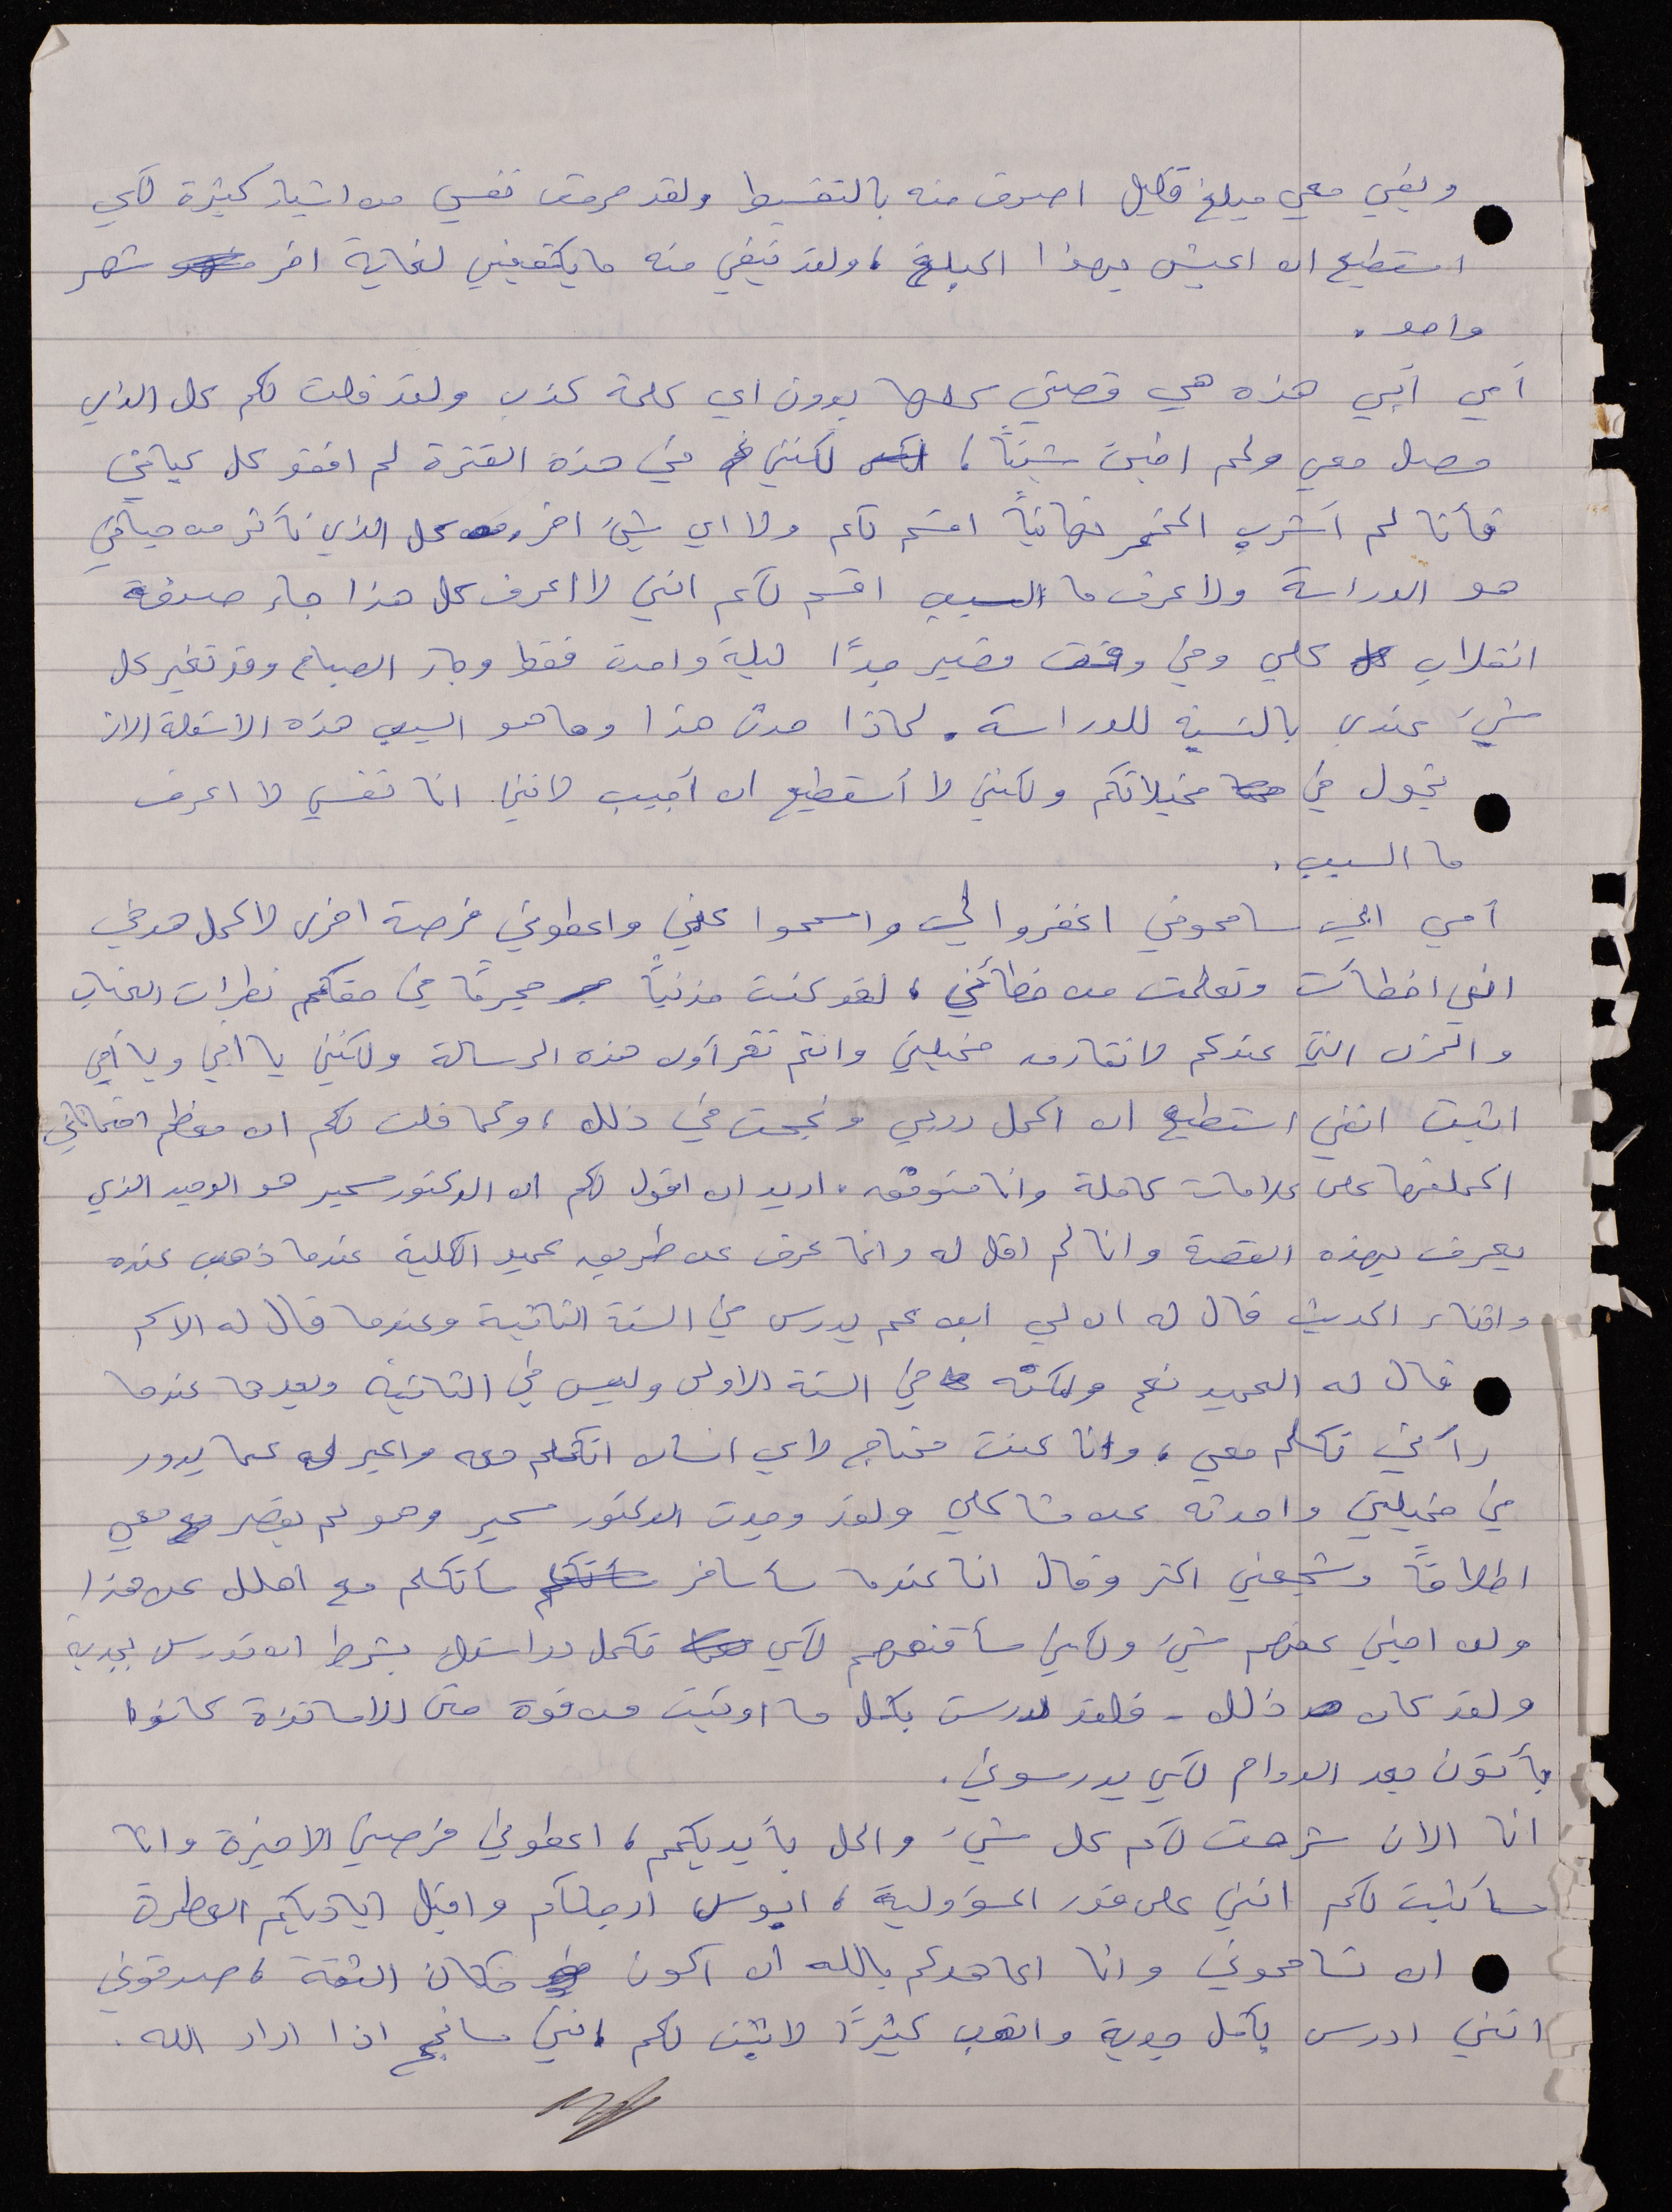 وبقي معي مبلغ قليل اصرف منه بالتقسيط ولقد حرمت نفسي من اشياء كثيرة لكي
استطيع ان اعيش بهذا المبلغ، ولقد تبقى منه ما يكفيني لغاية اخر شهر
واحد.
أمي أبي هذه هي قصتي كلها بدون اي كلمة كذب ولقد قلت لكم كل الذي
حصل معي ولم اخبئ شيئاً، لكنني في هذه الفترة لم افقد كل كياني
فأنا لم أشرب الخمر نهائياً اقسم لكم ولا اي شيئ اخر، كل الذي تأثر من حياتي
هو الدراسة ولا اعرف ما السبب اقسم لكم انني لا اعرف كل هذا جاء صدفة
انقلاب كلي وفي وقت قصير جداً ليلة واحدة فقط وجاء الصباح وقد تغير كل
شيئ عندي بالنسبة للدراسة. لماذا حدث هذا وما هو السبب هذه الاسئلة الان
تجول في مخيلاتكم ولكنني لا أستطيع ان أجيب لانني انا نفسي لا اعرف
ما السبب.
أمي ابي سامحوني اغفروا لي واسمحوا عني واعطوني فرصة اخرى لاكمل هدفي
انني اخطأت وتعلمت من خطائي، لقد كنت مذنباً مجرماً في حقكم نظرات العتاب
والحزن التي عندكم لا تفارق مخيلتي وانتم تقرأون هذه الرسالة ولكنني يا ابي ويا أمي
اثبت انني استطيع ان اكمل دربي ونجحت في ذلك، وكما قلت لكم ان معظم امتحاناتي
اكملتها على علامات كاملة وانا متوفق. اريد ان اقول لكم ان الدكتور سمير هو الوحيد الذي
يعرف بهذه القصة وانا لم اقل له وانما عرف عن طريق عميد الكلية عندما ذهب عنده
واثناء الحديث قال له ان لي ابن عم يدرس في السنة الثانية وعندما قال له الاسم
قال له العميد نعم ولكنه في السنة الاولى وليس في الثانية وبعدها عندما
رآني تكلم معي، وانا كنت محتاج لاي انسان اتكلم معه واعبر له عما يدور
في مخيلتي واحدثه عن مشاكلي ولقد وجدت الدكتور سمير وهو لم يقصر معي
اطلاقاً وشجعني اكثر وقال انا عندما سأسافر سأتكلم مع اهلك عن هذا
ولن اخبئ عنهم شيئ ولكني سأقنعهم لكي تكمل دراستك بشرط ان تدرس بجدية
ولقد كان ذلك - فلقد درست بكل ما اوتيت من قوة حتى الاساتذة كانوا
يأتون بعد الدوام لكي يدرسوني.
انا الان شرحت لكم كل شيئ والحل بأيديكم، اعطوني فرصتي الاخيرة وانا
سأثبت لكم انني على قدر المسؤولية، ابوس ارجلكم واقبل اياديكم العطرة
ان تسامحوني وانا اعاهدكم بالله أن اكون مكان الثقة، صدقوني
انني ادرس بكل جدية واتعب كثيراً لاثبت لكم انني سانجح اذا اراد الله.